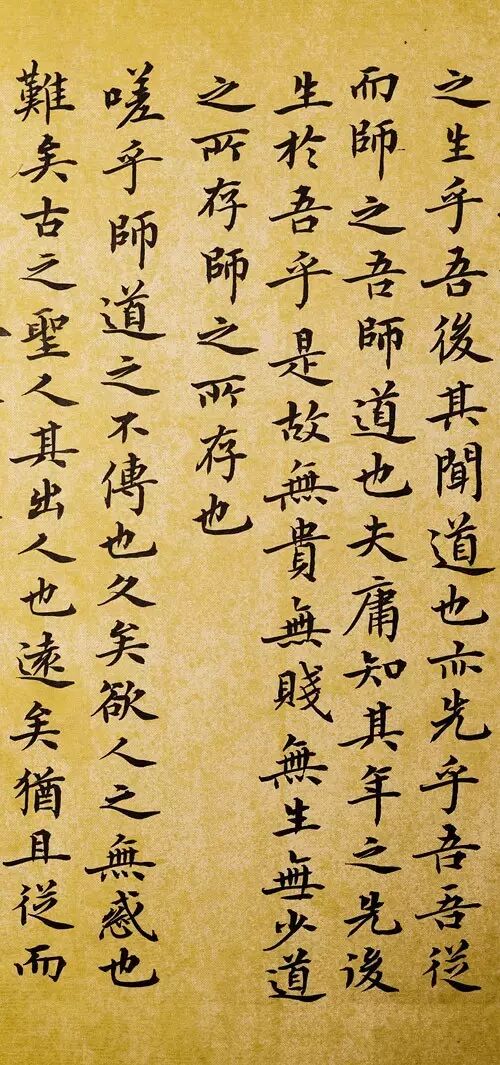 之生乎吾後其聞道也亦先乎吾吾從
而師之吾師道也夫庸知其年之先後
生於吾乎是故無貴無賤無生無少道
之所存師之所存也
嗟乎師道之不傳也久矣欲人之無惑也
難矣古之聖人其出人也遠矣猶且從而